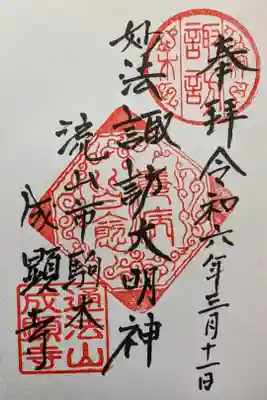 奉拝 令和六年三月十一日
諏訪
妙法 諏訪大明神
流山市駒木
成顕寺
法山
成顕寺